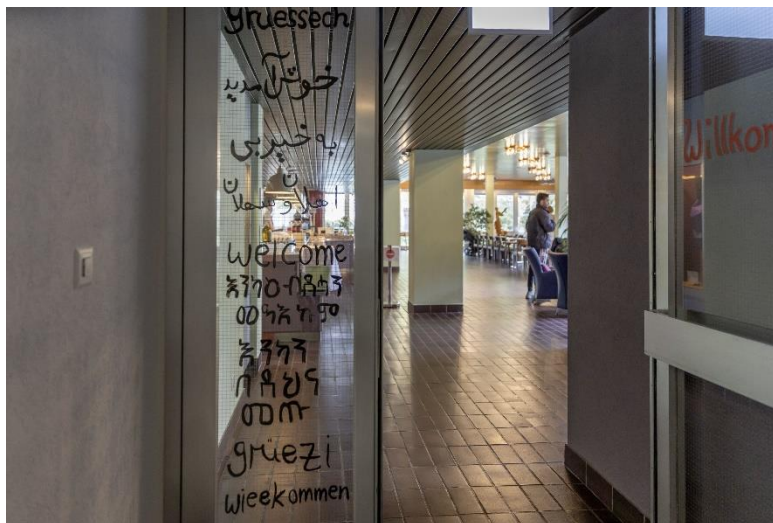 gruessech
خوش آمدید
به خیر بی
اهلا و سهلا
welcome
እንኳዕ ብደሓን
መፃእኩም
እንኳን
በደህና
መጡ
grüezi
wieekommen
Willkom